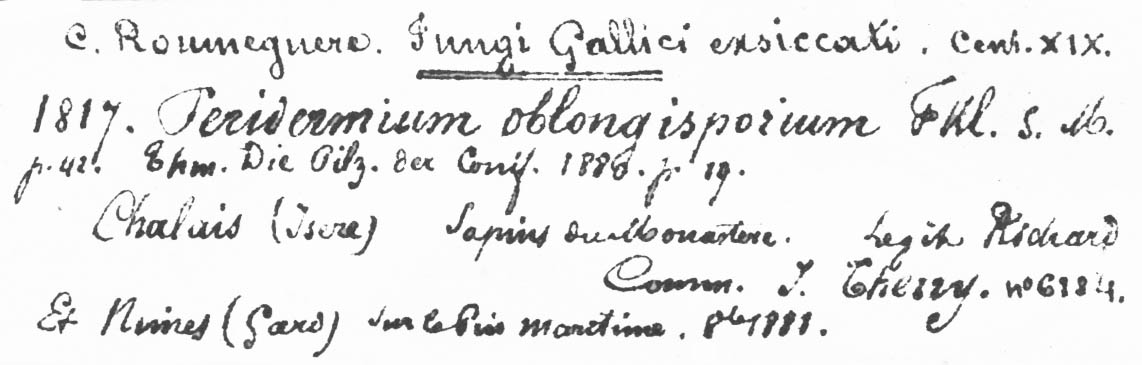 C. Roumeguere. Fungi Gallici exsiccati. Cent. XIX.
1817. Peridermium oblongisporium Fkl. S. M.
p. 42. Thm. Die Pilz. der Conif. 1886. p. 19.
Chalais (Isere) Sapins du Monastere. Legit Richard
Comm. J. Therry. no 6184.
Et Nimes (Gard) sur le Pin maritime. 8bre 1881.